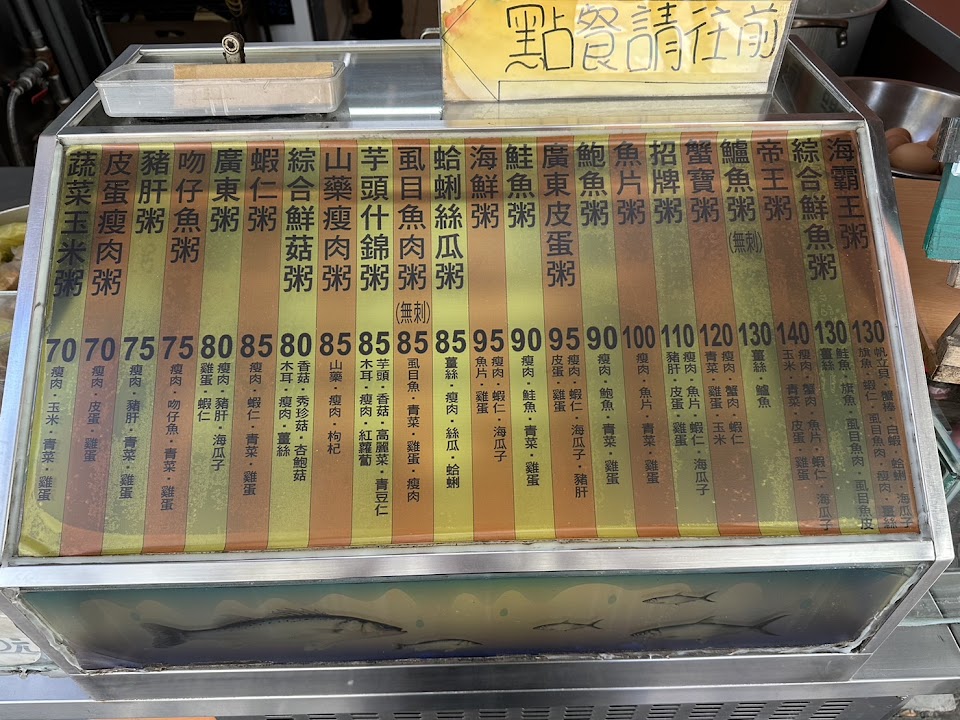 點餐請往前
海霸王粥 130 帆立貝·蟹棒·白蝦·蛤蜊·海瓜子 旗魚·蝦仁·虱目魚肉·瘦肉·薑絲
綜合鮮魚粥 130 鮭魚·旗魚·虱目魚肉·虱目魚皮 薑絲
帝王粥 140 瘦肉·蟹肉·魚片·蝦仁·海瓜子 玉米·青菜·皮蛋
鱸魚粥(無刺) 130 薑絲·鱸魚
蟹寶粥 120 瘦肉·蟹肉·蝦仁 青菜·雞蛋·玉米
招牌粥 110 瘦肉·魚片·蝦仁·海瓜子 豬肝·皮蛋·雞蛋
魚片粥 100 瘦肉·魚片·青菜·雞蛋
鮑魚粥 90 瘦肉·鮑魚·青菜·雞蛋
廣東皮蛋粥 95 瘦肉·蝦仁·海瓜子·豬肝 皮蛋·雞蛋
鮭魚粥 90 瘦肉·鮭魚·青菜·雞蛋
海鮮粥 95 瘦肉·蝦仁·海瓜子 魚片·雞蛋
蛤蜊絲瓜粥 85 薑絲·瘦肉·絲瓜·蛤蜊
虱目魚肉粥(無刺) 85 虱目魚·青菜·雞蛋·瘦肉
芋頭什錦粥 85 芋頭·香菇·高麗菜·青豆仁 木耳·瘦肉·紅蘿蔔
山藥瘦肉粥 85 山藥·瘦肉·枸杞
綜合鮮菇粥 80 香菇·秀珍菇·杏鮑菇 木耳·瘦肉·薑絲
蝦仁粥 85 瘦肉·蝦仁·青菜·雞蛋
廣東粥 80 瘦肉·豬肝·海瓜子 雞蛋·蝦仁
吻仔魚粥 75 瘦肉·吻仔魚·青菜·雞蛋
豬肝粥 75 瘦肉·豬肝·青菜·雞蛋
皮蛋瘦肉粥 70 瘦肉·皮蛋·雞蛋
蔬菜玉米粥 70 瘦肉·玉米·青菜·雞蛋